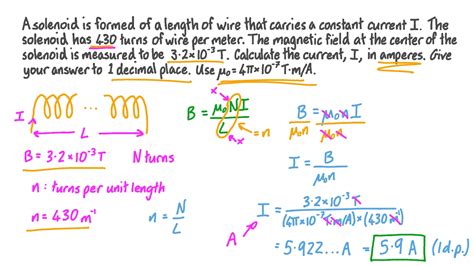 A solenoid is formed of a length of wire that carries a constant current I. The
solenoid has 430 turns of wire per meter. The magnetic field at the center of the
solenoid is measured to be 3·2×10⁻³ T. Calculate the current, I, in amperes. Give
your answer to 1 decimal place. Use μ₀=4π×10⁻⁷ T·m/A.
I ... L
B = 3·2×10⁻³ T N turns
n : turns per unit length
n = 430 m⁻¹ n = N/L
x B = μ₀NI/L = n x
B/μ₀n = μ₀nI/μ₀n
I = B/μ₀n
A I = 3·2×10⁻³ T/(4π×10⁻⁷ T·m/A)×(430 m⁻¹)
= 5·922...A = 5·9 A (1d.p.)